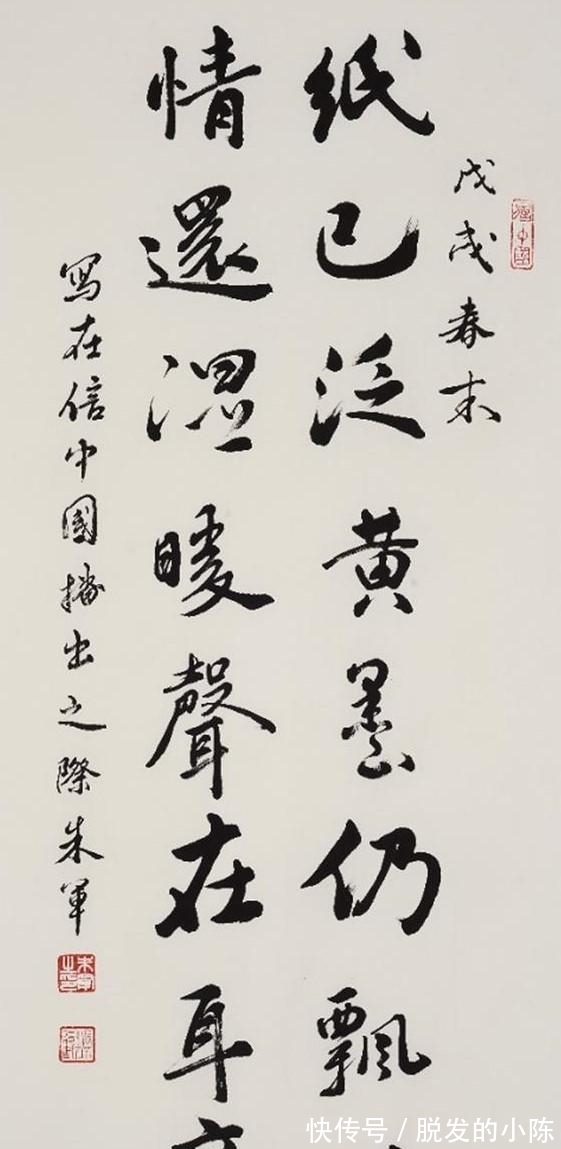 戊戌春末
紙已泛黄墨仍飄
情還温暖聲在耳
寫在信中國播出之際朱軍
快传号 / 脱发的小陈